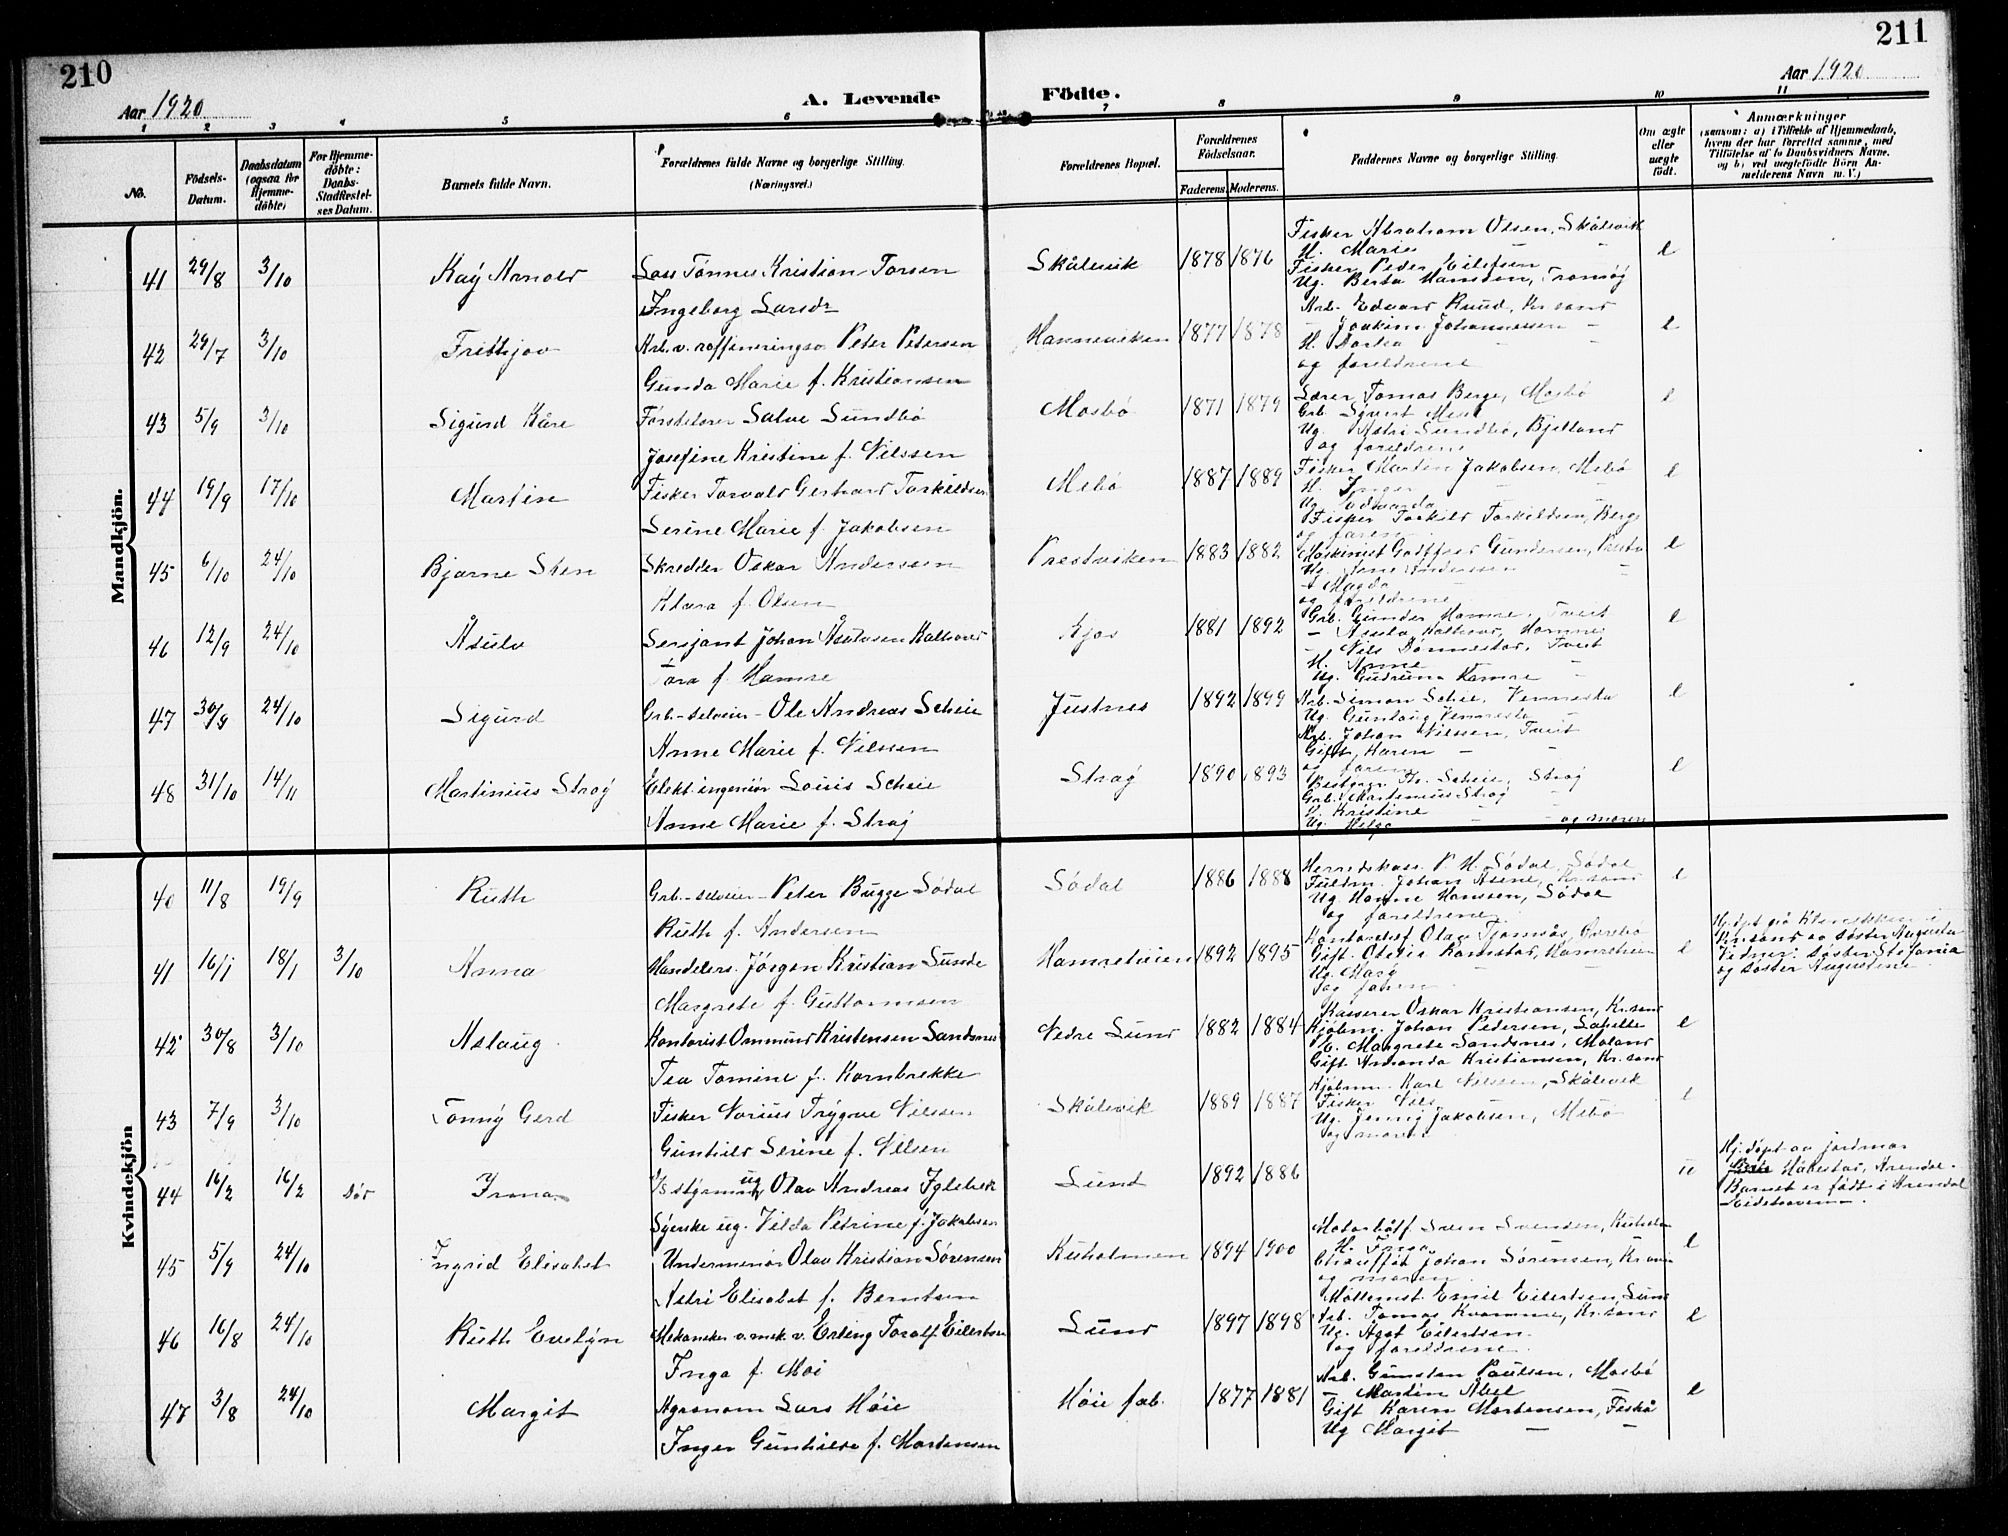 210
211
Aar 1920
A. Levende
Födte.
Aar 1920
1 2 3 4 5 6 7 8 9 10 11
No.
Födsels-
Datum.
Daabsdatum
(ogsaa for
Hjemme-
döbte)
For Hjemme-
döbte:
Daabs-
Stadfæstel-
ses Datum.
Barnets fulde Navn.
Forældrenes fulde Navne og borgerlige Stilling.
(Næringsvei.)
Forældrenes Bopæl.
Forældrenes
Födselsaar.
Faderens. Moderens.
Faddernes Navne og borgerlige Stilling.
Om ægte
eller
uægte
födt.
Anmærkninger
(saasom: a) i Tilfælde af Hjemmedaab,
hvem der har forrettet samme, med
Tilföielse af to Daabsvidners Navne.
og b) ved uægtefödte Börn An-
melderens Navn m. V.)
Mandkjön.
41 29/8 3/10 Kay Arnold
Tønnes Kristian Torsen
Ingeborg Larsdr
Skålevik 1878 1876
Fisker Abraham Olsen, Skålevik
H. Marie
Fisker Peder Eilefsen
Ug. Berta Hansden, Tromøy
e
42 29/7 3/10 Frithjov
Arb. v. raffineringsv. Peter Petersen
Gunda Marie f. Kristiansen
Hanneviken 1877 1878
Arb. Edvard Ruud, Kr.sand
- Joakim Johannessen -
H. Dorthea
og foreldrene
e
43 5/9 3/10 Sigurd Kåre
Førstelærer Salve Sundbø
Josefine Kristine f. Nilssen
Mosbø 1871 1879
Lærer Tomas Berge, Mosbø
Grb. Sivert Mesel
Ug. Astri Sundbø, Bjelland
og foreldrene
e
44 19/9 17/10 Martin
Fisker Torvald Gerhard Torkildsen
Serine Marie f. Jakobsen
Mebø 1887 1889
Fisker Martin Jakobsen, Mebø
H. Inger
Ug.
Fisker Torkild Torkildsen, Berge
og faren
e
45 6/10 24/10 Bjarne Sten
Skredder Oskar Andersen
Klara f. Olsen
Prestviken 1883 1882
Maskinist Godtfred Gundersen, Prestv
Ug. Jane Andersen
- Magda
og foreldrene
e
46 12/9 24/10 Åsulv
Sersjant Johan Åsulvsen Kolhaved
Tora f. Hamre
Kjos 1881 1892
Grb. Gunder Hamre, Tveit
- Åsulv Hamre
- Nils Dønnestad, Tveit
H. Anne
Ug. Gudrun Hamre
e
47 30/9 24/10 Sigurd
Grb-selveier- Ole Andreas Scheie
Anne Marie f. Nilssen
Justnes 1892 1899
Arb. Simon Scheie, Vennesla
Ug. Gunlaug Vennesla
Arb. Johan Nilssen, Tveit
Gift, Karen - -
og faren
e
48 31/10 14/11 Martinius Stray
Elekt. ingeniør Louis Scheie
Anne Marie f. Stray
Stray 1890 1893
Bestyrer Scheie, Stray
Grb. Martinius Stray
H. Kristine
Ug. Helga - - og moren
e
Kvindekjön
40 11/8 19/9 Ruth
Grb-selveier- Peter Bugge Sødal
Ruth f. Andersen
Sødal 1886 1888
Herredskass. P. H. Sødal, Sødal
Fuldm. Johan Kr.sand
Ug. Hanne Hanssen, Sødal
og foreldrene
e
41 16/1 18/1 3/10 Anna
Handelsr. Jørgen Kristian Sunde
Margrete f. Guttormsen
Hamreheien 1892 1895
Kontorchef Olav Tjomsås,
Gift. Otilie Ramstad, Hamreheien
Ug. Mary
og faren
e
Hj.døpt på i
Kr.sand av søster Augusta
Vidner: søster Stefania
og søster Augustine
42 30/8 3/10 Aslaug
Kontorist Ommund Kristensen Sandsnes
Tea Tomine f. Kornbrekke
Nedre Lund 1882 1884
Kasserer Oskar Kristiansen, Kr.sand
Kjøbm. Johan Pedersen,
E. Margrete Sandsnes, Moland
Gift. Amanda Kristiansen, Kr.sand
e
43 7/9 3/10 Tonny Gerd
Fisker Norius Trygve Nilssen
Gunhild Serine f. Nilsen
Skålevik 1889 1887
Kjøbm. Karl Nilssen, Skålevik
Fisker Nils
Ug. Jenny Jakobsen, Mebø
og moren
e
44 16/2 16/2 død Irma
ug Olav Andreas Iglebæk
Syerske ug. Vilda Petrine f. Jakobsen
Lund 1892 1886
u
Hj.døpt av jordmor
Håbestad, Arendal.
Barnet er født i Arendal
45 5/9 24/10 Ingrid Elisabet
Undermenør Olav Kristian Sørensen
Astri Elisabet f. Berntsen
Kuholmen 1894 1900
Motorbåtf. Sven Svendsen,
H. Inga
Chauffør Johan Sørensen, Kr.sand
og moren
e
46 16/8 24/10 Ruth Evelyn
Mekaniker v. mek. v. Erling Toralf Eilertsen
Inga f. Moi
Lund 1897 1898
Emil Eilertsen, Lund
Arb. Tomas Kvamme, Kr.sand
Ug. Agot Eilertsen
og foreldrene
e
47 3/8 24/10 Margit
Agronom Lars Høie
Inger Gunhilde f. Mortensen
Høie fab. 1877 1881
Arb. Gunstein Paulsen, Mosbø
- Martin Abel -
Gift Karen Mortensen, Fiskå
Ug Margit - -
e